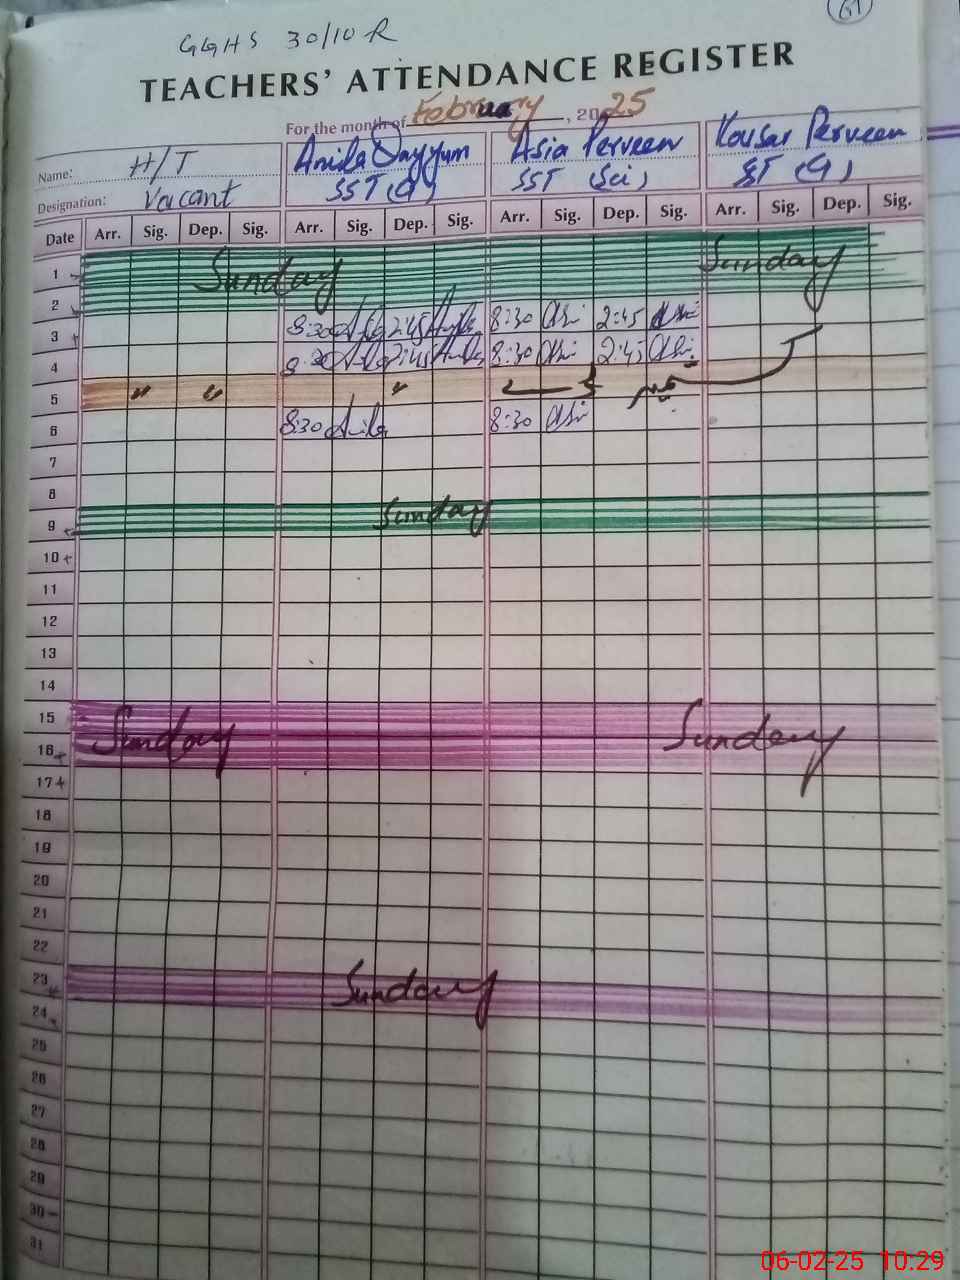 61
GGHS 30/10 R
TEACHERS' ATTENDANCE REGISTER
For the month of February, 2025
Name: H/T Anila Qayyum Asia Perveen Kousar Perveen
Designation: Vacant SST (G) SST (Sci) SST (G)
Date Arr. Sig. Dep. Sig. Arr. Sig. Dep. Sig. Arr. Sig. Dep. Sig. Arr. Sig. Dep. Sig.
1 Sunday Sunday
2
3 8:30 2:45 8:30 2:45
4 8:30 2:45 8:30 2:45
5 " " "
6 8:30 Anila 8:30
7
8
9 Sunday
10
11
12
13
14
15
16 Sunday Sunday
17
18
19
20
21
22
23 Sunday
24
25
26
27
28
29
30
31
06-02-25 10:29